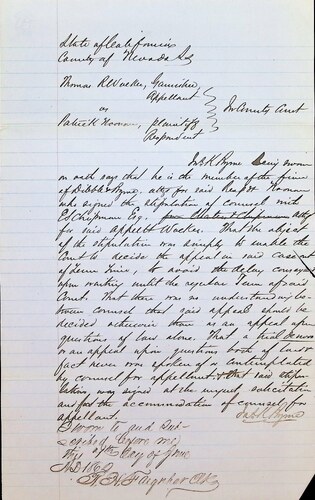 State of California
County of Nevada SS
Thomas R Walker, Garnishee,
Appellant
vs
Patrick Noonan, plaintiff
Respondent
In County Court
Jas K Byrne being sworn
on oath says that he is the member of the firm
of Dibble & Byrne, attys for said Resp't Noonan
who signed the stipulation of counsel with
E S Chipman Esq. atty
for said appellt Walker. That the object
of the stipulation was simply to enable the
Court to decide the appeal in said case out
of Term Time, to avoid the delay conseq
upon waiting until the regular Term of said
Court. That there was no understanding be-
tween counsel that said appeal should be
decided otherwise than as an appeal upon
questions of law alone. That a trial de novo
or an appeal upon questions both of law &
fact never was spoken of or contemplated
by counsel for appellant & that said stipu-
lation was signed at the urgent solicitation
and for the accommodation of counsel for
appellant.
Jas K Byrne
Sworn to and sub-
scribed before me
this day of June
AD 186
Clk